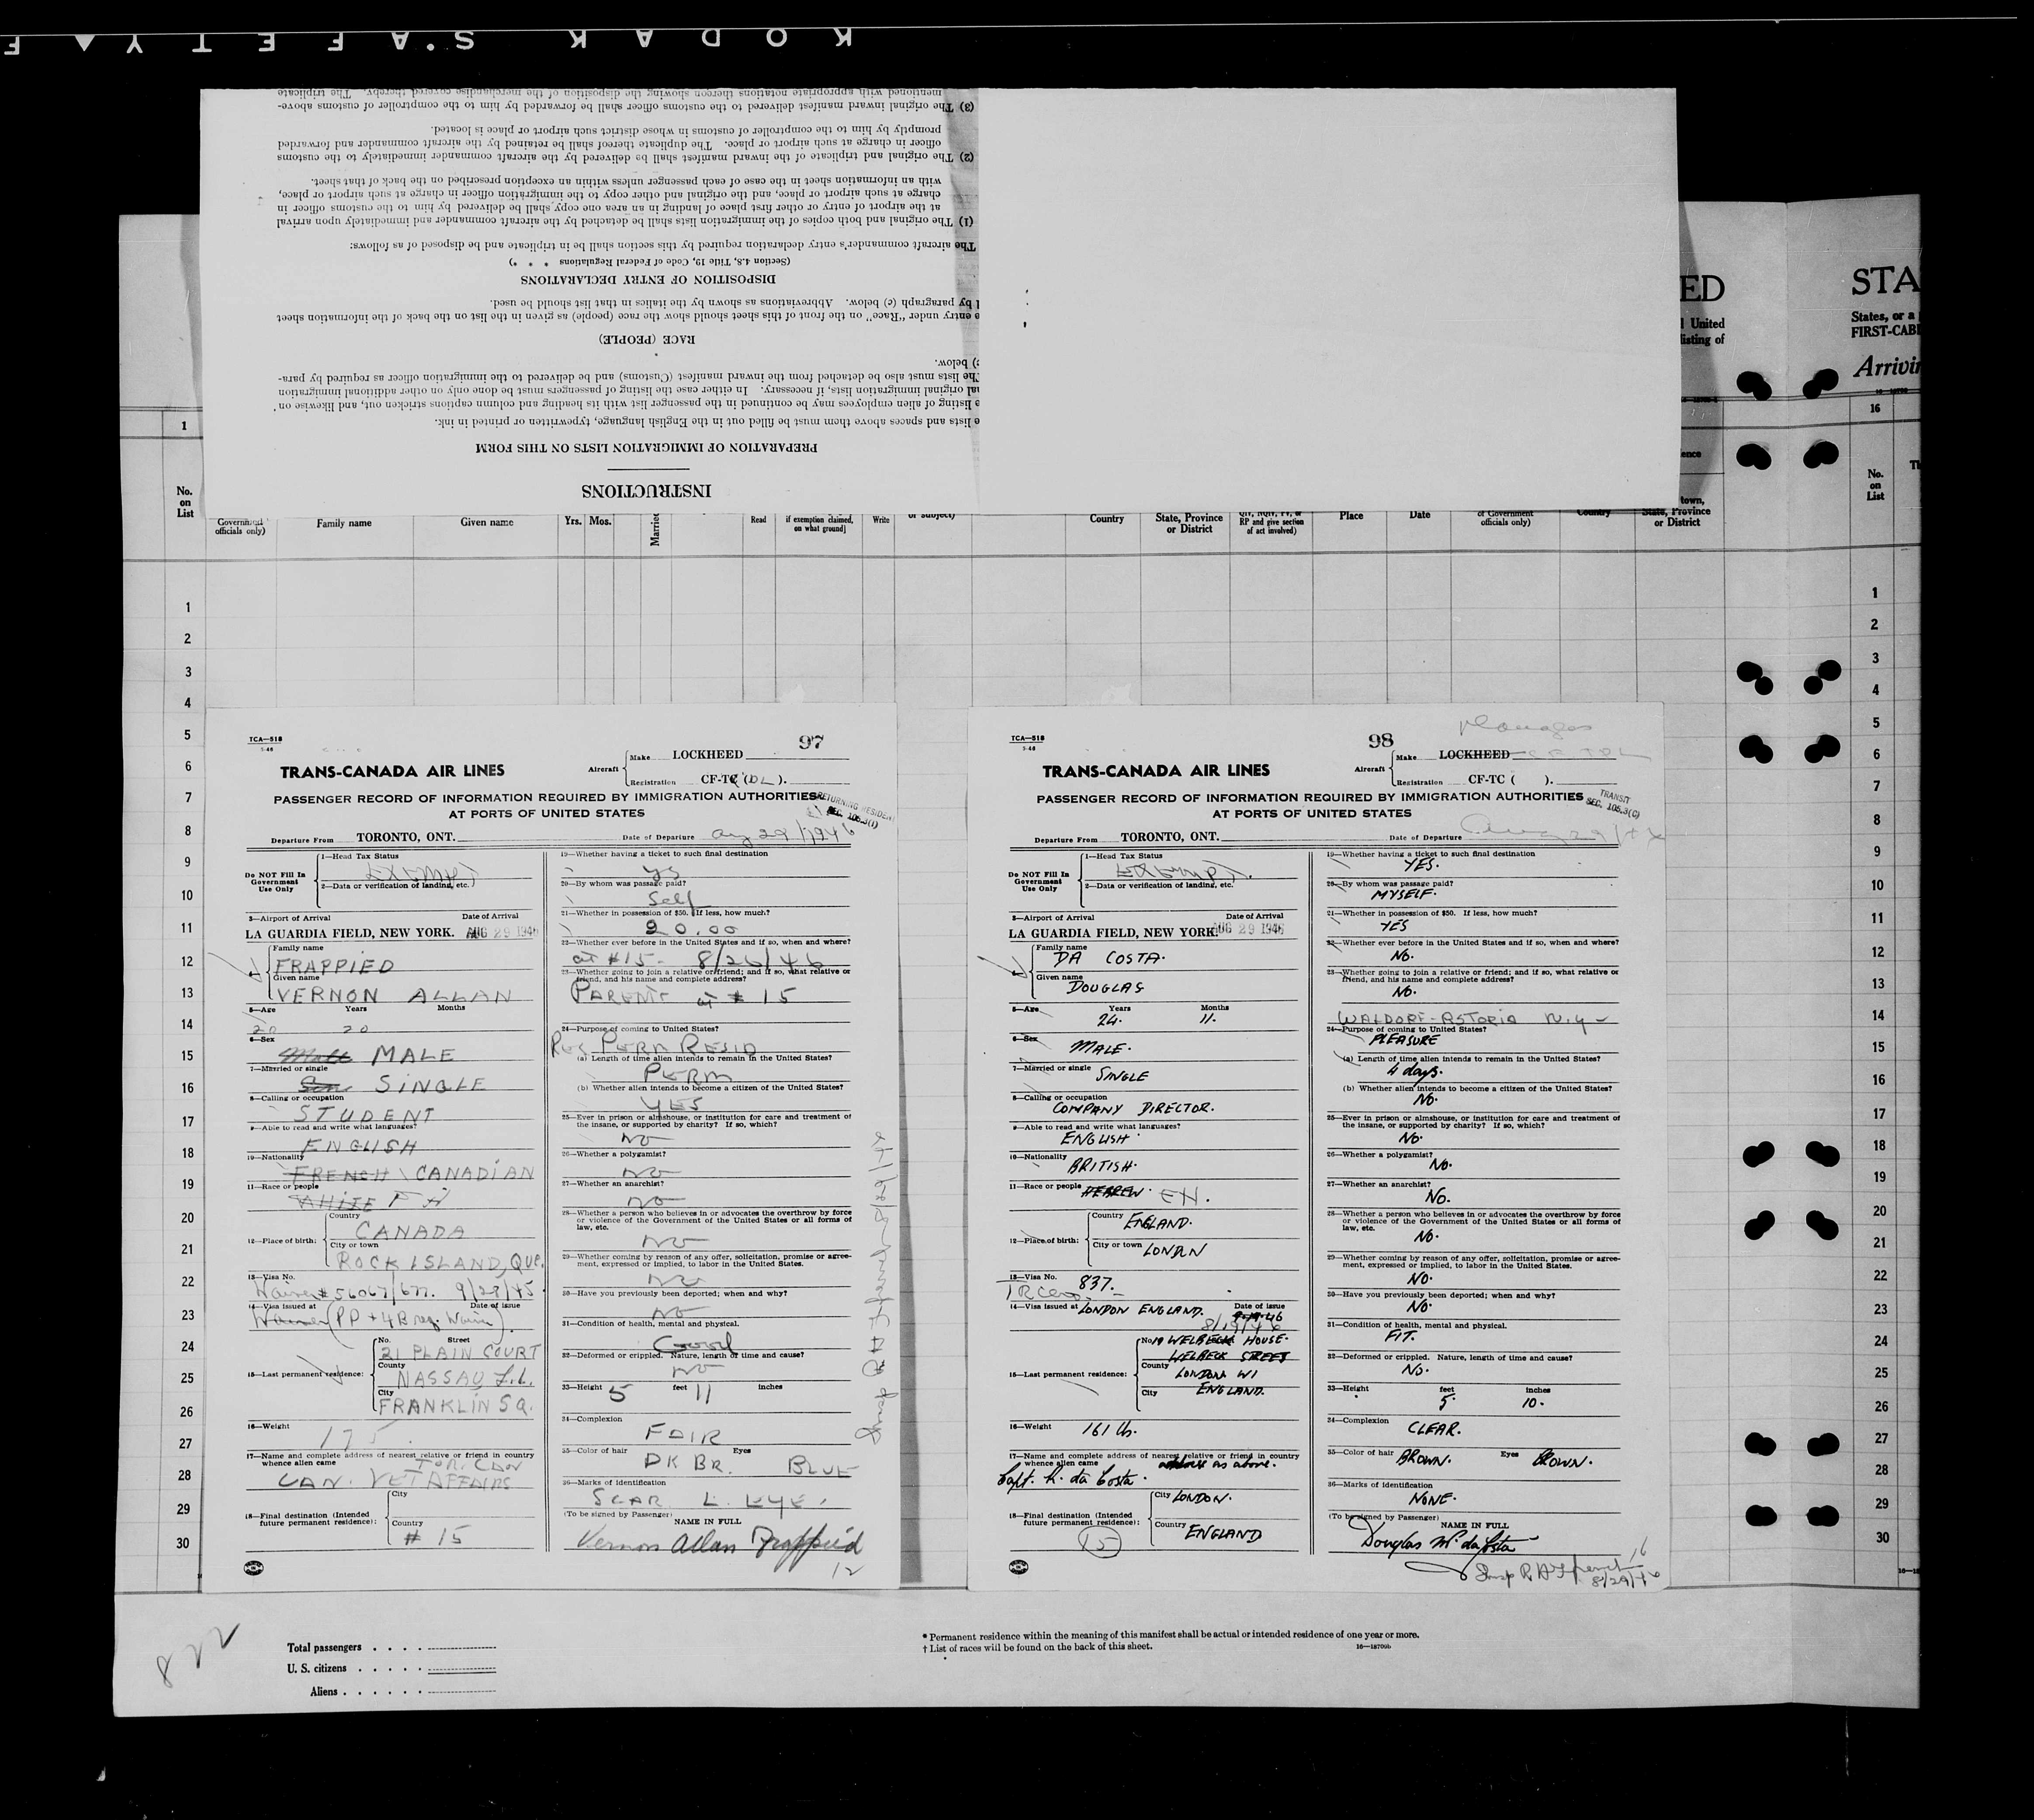 KODAK SAFETY
INSTRUCTIONS
PREPARATION OF IMMIGRATION LISTS ON THIS FORM
e lists and spaces above them must be filled out in the English language, typewritten or printed in ink.
e listing of alien employees may be continued in the passenger list with its heading and column captions stricken out, and likewise on
nal original immigration lists, if necessary. In either case the listing of passengers must be done only on other additional immigration
The lists must also be detached from the inward manifest (Customs) and be delivered to the immigration officer as required by para-
) below.
RACE (PEOPLE)
e entry under "Race" on the front of this sheet should show the race (people) as given in the list on the back of the information sheet
by paragraph (c) below. Abbreviations as shown by the italics in that list should be used.
DISPOSITION OF ENTRY DECLARATIONS
(Section 4.8, Title 19, Code of Federal Regulations * * *)
The aircraft commander's entry declaration required by this section shall be in triplicate and be disposed of as follows:
(1) The original and both copies of the immigration lists shall be detached by the aircraft commander and immediately upon arrival
at the airport of entry or other first place of landing in an area one copy shall be delivered by him to the customs officer in
charge at such airport or place, and the original and other copy to the immigration officer in charge at such airport or place,
with an information sheet in the case of each passenger unless within an exception prescribed on the back of that sheet.
(2) The original and triplicate of the inward manifest shall be delivered by the aircraft commander immediately to the customs
officer in charge at such airport or place. The duplicate thereof shall be retained by the aircraft commander and forwarded
promptly by him to the comptroller of customs in whose district such airport or place is located.
(3) The original inward manifest delivered to the customs officer shall be forwarded by him to the comptroller of customs above-
mentioned with appropriate notations thereon showing the disposition of the merchandise covered thereby. The triplicate
ED
l United
listing of
STA
States, or a
FIRST-CABI
Arrivin
1
16
No. on List
Government officials only)
Family name
Given name
Yrs.
Mos.
Married
Read
if exemption claimed, on what ground]
Write
or subject)
Country
State, Province or District
RP and give section of act involved)
Place
Date
of Government officials only)
Country
State, Province or District
ence
town,
No. on List
1
2
3
4
5
6
7
8
9
10
11
12
13
14
15
16
17
18
19
20
21
22
23
24
25
26
27
28
29
30
TCA—518
5-46
97
TRANS-CANADA AIR LINES
Aircraft
Make LOCKHEED
Registration CF-TC (DL).
PASSENGER RECORD OF INFORMATION REQUIRED BY IMMIGRATION AUTHORITIES
AT PORTS OF UNITED STATES
RETURNING RESIDENT
SEC. 106.3(1)
Departure From TORONTO, ONT.
Date of Departure Aug 29/1946
Do NOT Fill In Government Use Only
1—Head Tax Status
EXEMPT
2—Data or verification of landing, etc.
3—Airport of Arrival Date of Arrival
LA GUARDIA FIELD, NEW YORK. AUG 29 1946
Family name
FRAPPIED
Given name
VERNON ALLAN
5—Age Years Months
20 20
6—Sex
Male MALE
7—Married or single
Sin SINGLE
8—Calling or occupation
STUDENT
9—Able to read and write what languages?
ENGLISH
10—Nationality
FRENCH CANADIAN
11—Race or people
WHITE
12—Place of birth:
Country
CANADA
City or town
ROCK ISLAND, QUE.
13—Visa No.
Waiver # 56067/677. 9/27/45
14—Visa issued at Date of issue
(PP + 4B reg. Waiv)
15—Last permanent residence:
No. Street
21 PLAIN COURT
County
NASSAU L.I.
City
FRANKLIN SQ.
16—Weight
175
17—Name and complete address of nearest relative or friend in country
whence alien came
TOR. CAN
CAN. VET AFFAIRS
18—Final destination (Intended future permanent residence):
City
Country
# 15
19—Whether having a ticket to such final destination
YS
20—By whom was passage paid?
Self
21—Whether in possession of $50. If less, how much?
20.00
22—Whether ever before in the United States and if so, when and where?
at #15- 8/26/46
23—Whether going to join a relative or friend; and if so, what relative or
friend, and his name and complete address?
PARENTS at # 15
24—Purpose of coming to United States?
Res PERM RESID
(a) Length of time alien intends to remain in the United States?
PERM
(b) Whether alien intends to become a citizen of the United States?
YES
25—Ever in prison or almshouse, or institution for care and treatment of
the insane, or supported by charity? If so, which?
NO
26—Whether a polygamist?
NO
27—Whether an anarchist?
NO
28—Whether a person who believes in or advocates the overthrow by force
or violence of the Government of the United States or all forms of
law, etc.
NO
29—Whether coming by reason of any offer, solicitation, promise or agree-
ment, expressed or implied, to labor in the United States.
NO
30—Have you previously been deported; when and why?
NO
31—Condition of health, mental and physical.
Good
32—Deformed or crippled. Nature, length of time and cause?
NO
33—Height 5 feet 11 inches
34—Complexion
FAIR
35—Color of hair Eyes
DK BR. BLUE
36—Marks of identification
SCAR L. EYE.
(To be signed by Passenger) NAME IN FULL
Vernon Allan Frappied
12
TCA—518
5-46
98
TRANS-CANADA AIR LINES
Aircraft
Make LOCKHEED
Registration CF-TC ( ).
PASSENGER RECORD OF INFORMATION REQUIRED BY IMMIGRATION AUTHORITIES
AT PORTS OF UNITED STATES
TRANSIT
SEC. 106.3(C)
Departure From TORONTO, ONT.
Date of Departure Aug 29/46
Do NOT Fill In Government Use Only
1—Head Tax Status
EXEMPT.
2—Data or verification of landing, etc.
3—Airport of Arrival Date of Arrival
LA GUARDIA FIELD, NEW YORK. AUG 29 1946
Family name
DA COSTA.
Given name
DOUGLAS
5—Age Years Months
24. 11.
6—Sex
MALE.
7—Married or single
SINGLE
8—Calling or occupation
COMPANY DIRECTOR.
9—Able to read and write what languages?
ENGLISH
10—Nationality
BRITISH.
11—Race or people HEBREW. EN.
12—Place of birth:
Country
ENGLAND.
City or town
LONDN
13—Visa No. 837.
14—Visa issued at LONDON ENGLAND. Date of issue
8/19/46
15—Last permanent residence:
No. 19 WELBECK HOUSE.
WELBECK STREET
County
LONDON W1
City ENGLAND.
16—Weight
161 lb.
17—Name and complete address of nearest relative or friend in country
whence alien came address as above.
Capt. R. da Costa.
18—Final destination (Intended future permanent residence):
City LONDON.
Country ENGLAND
15
19—Whether having a ticket to such final destination
YES.
20—By whom was passage paid?
MYSELF.
21—Whether in possession of $50. If less, how much?
YES
22—Whether ever before in the United States and if so, when and where?
No.
23—Whether going to join a relative or friend; and if so, what relative or
friend, and his name and complete address?
No.
WALDORF-ASTORIA N.Y-
24—Purpose of coming to United States?
PLEASURE
(a) Length of time alien intends to remain in the United States?
4 days.
(b) Whether alien intends to become a citizen of the United States?
No.
25—Ever in prison or almshouse, or institution for care and treatment of
the insane, or supported by charity? If so, which?
No.
26—Whether a polygamist?
No.
27—Whether an anarchist?
No.
28—Whether a person who believes in or advocates the overthrow by force
or violence of the Government of the United States or all forms of
law, etc.
No.
29—Whether coming by reason of any offer, solicitation, promise or agree-
ment, expressed or implied, to labor in the United States.
No.
30—Have you previously been deported; when and why?
No.
31—Condition of health, mental and physical.
FIT.
32—Deformed or crippled. Nature, length of time and cause?
No.
33—Height feet inches
5. 10.
34—Complexion
CLEAR.
35—Color of hair BROWN. Eyes BROWN.
36—Marks of identification
NONE.
(To be signed by Passenger) NAME IN FULL
Douglas M. da Costa
16
8/29/46
1
2
3
4
5
6
7
8
9
10
11
12
13
14
15
16
17
18
19
20
21
22
23
24
25
26
27
28
29
30
822
Total passengers
U. S. citizens
Aliens
* Permanent residence within the meaning of this manifest shall be actual or intended residence of one year or more.
† List of races will be found on the back of this sheet.
16—18709b